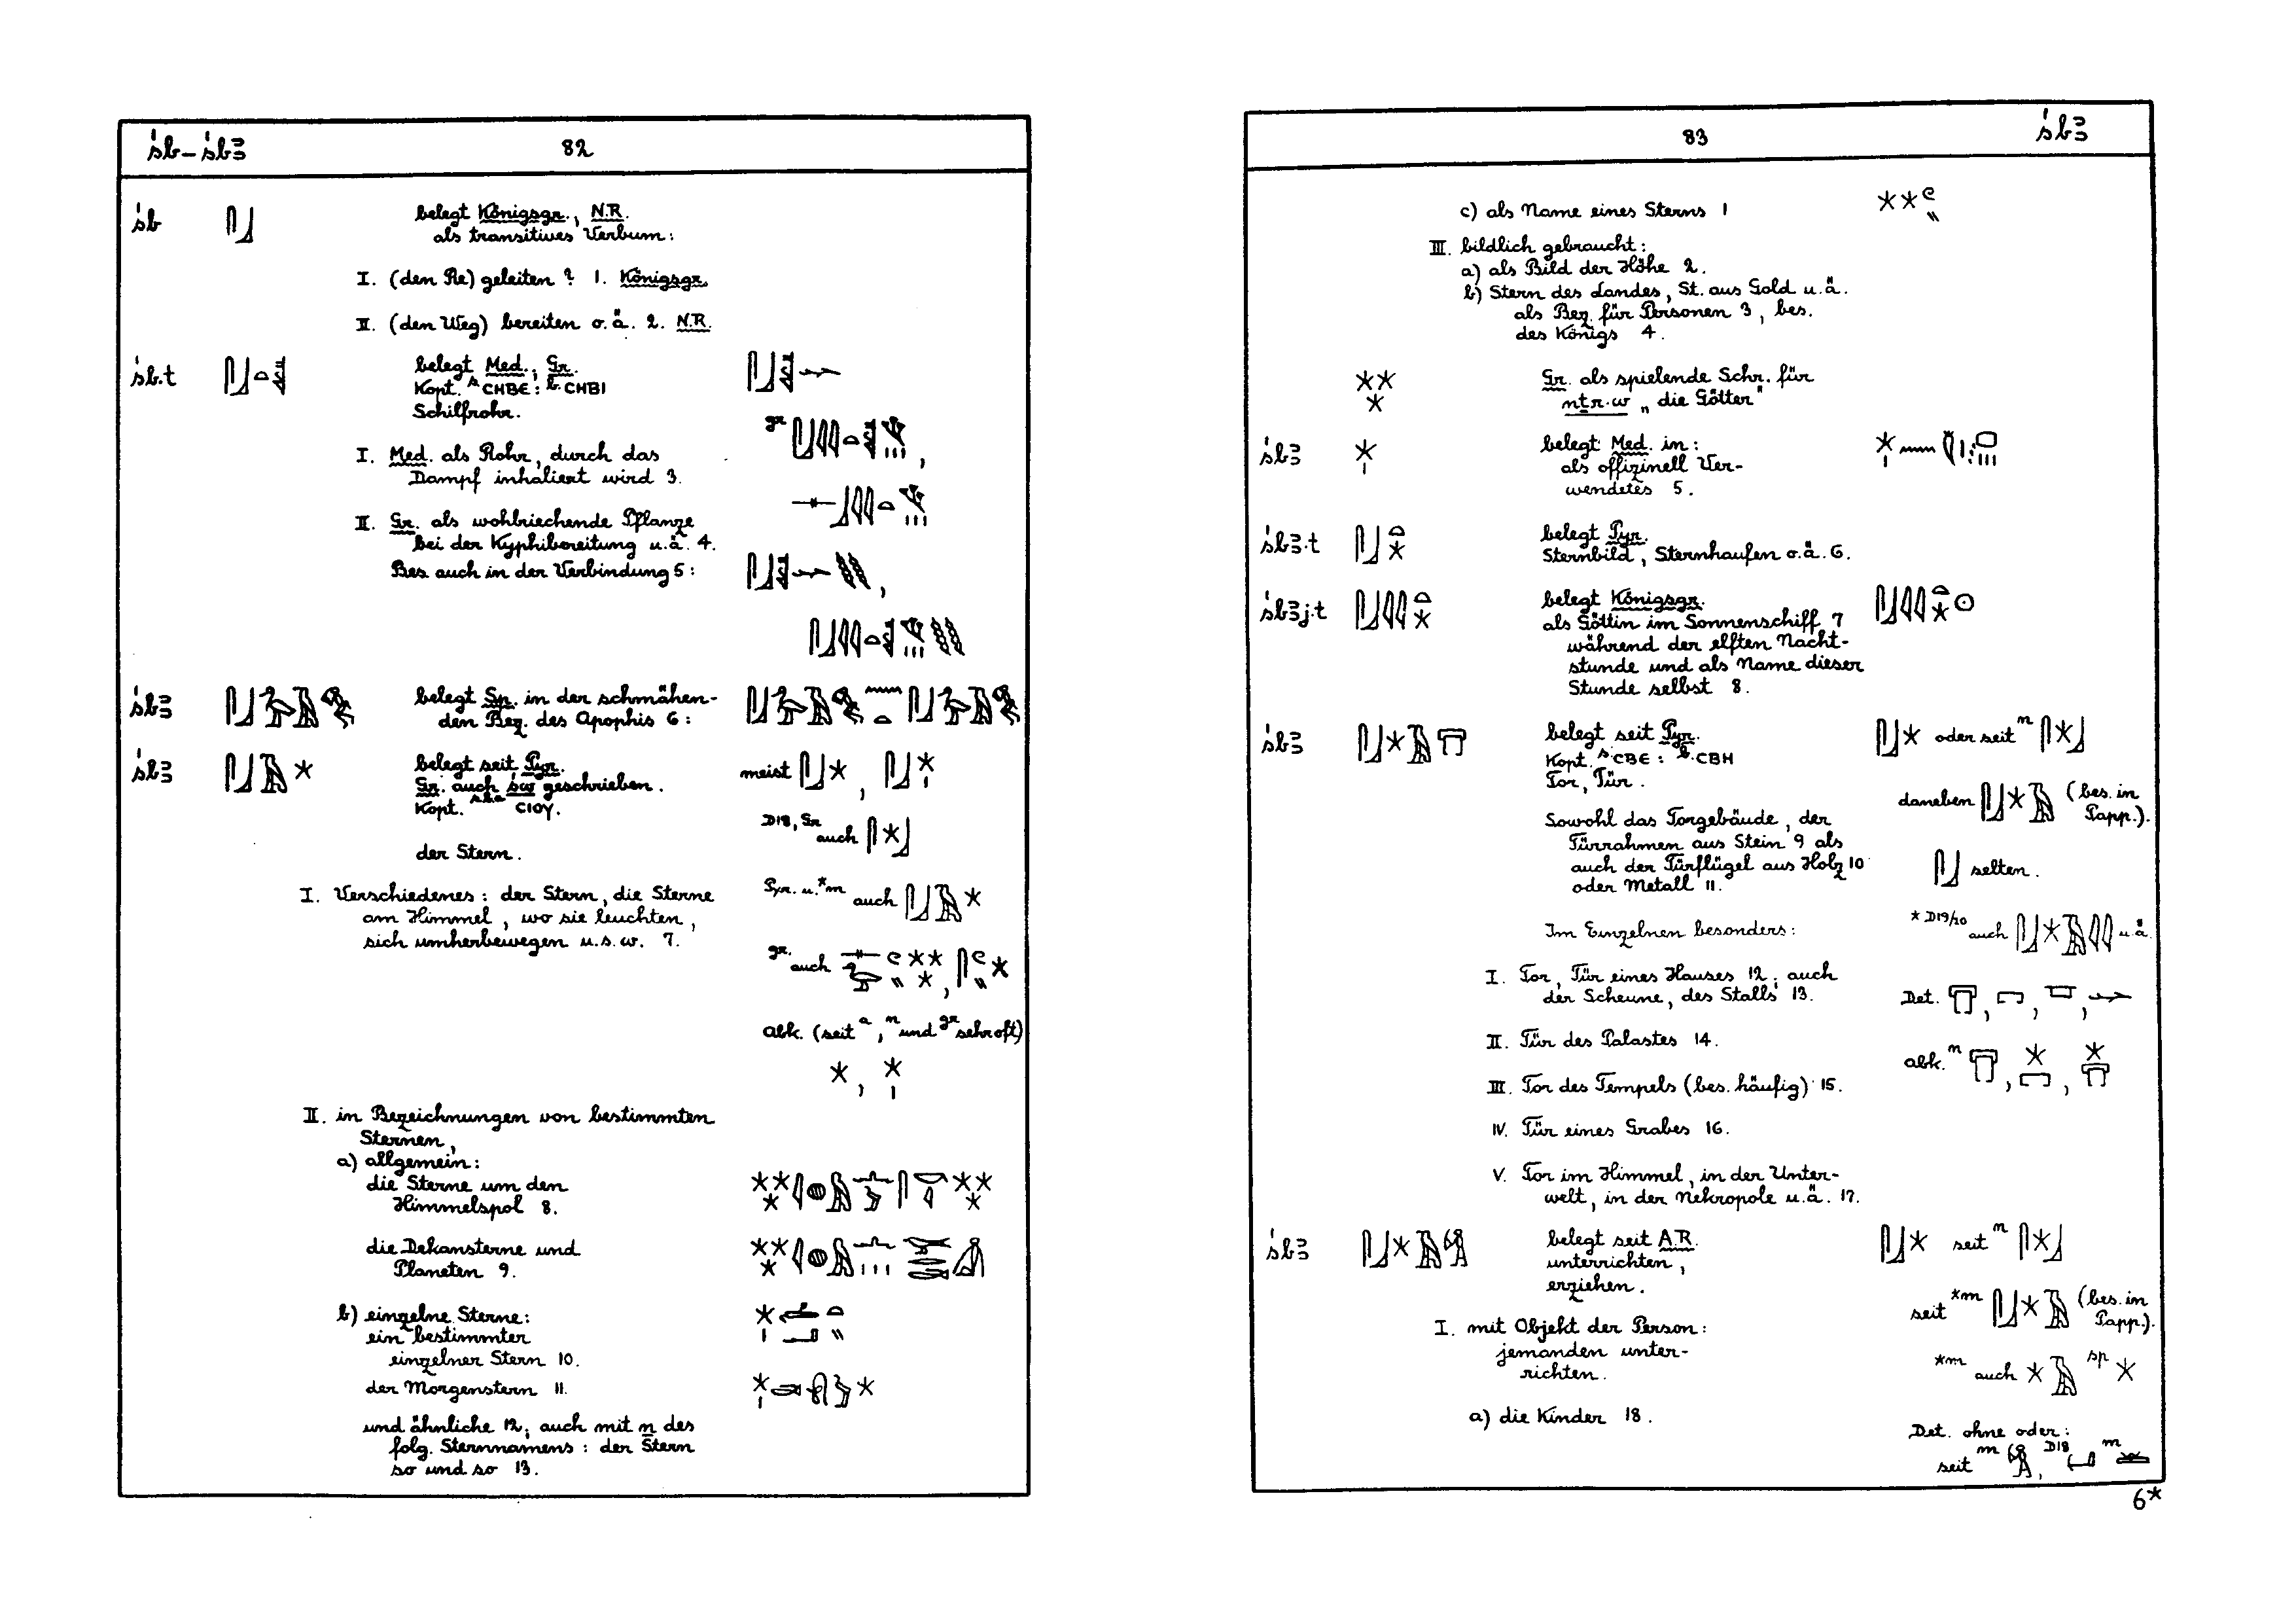 śb–śbꜣ 82
śb 𓋴𓃀 belegt Königsgr., N.R.
als transitives Verbum:
I. (den Re) geleiten? 1. Königsgr.
II. (den Weg) bereiten o.ä. 2. N.R.
śb.t belegt Med., Gr.
Kopt. s. CHBE: b. CHBI
Schilfrohr.
gr
I. Med. als Rohr, durch das
Dampf inhaliert wird 3.
II. Gr. als wohlriechende Pflanze
bei der Kyphibereitung u.ä. 4.
Bes. auch in der Verbindung 5:
śbꜣ belegt Sp. in der schmähen-
den Bez. des Apophis 6:
śbꜣ belegt seit Pyr.
Gr. auch św geschrieben.
Kopt. CIOY.
meist 𓋴𓃀𓇼, 𓋴𓃀𓇼𓏤
D18, Gr auch 𓋴𓇼𓃀
der Stern.
I. Verschiedenes: der Stern, die Sterne
am Himmel, wo sie leuchten,
sich umherbewegen u.s.w. 7.
Pyr. u. *m auch 𓋴𓃀𓅡𓇼
gr. auch
abk. (seit a, n und gr sehr oft)
𓇼, 𓇼𓏤
II. in Bezeichnungen von bestimmten
Sternen,
a) allgemein:
die Sterne um den
Himmelspol 8.
die Dekansterne und
Planeten 9.
b) einzelne Sterne:
ein bestimmter
einzelner Stern 10.
der Morgenstern 11.
und ähnliche 12; auch mit n des
folg. Sternnamens: der Stern
so und so 13.
83 śbꜣ
c) als Name eines Sterns 1
III. bildlich gebraucht:
a) als Bild der Höhe 2.
b) Stern des Landes, St. aus Gold u.ä.
als Bez. für Personen 3, bes.
des Königs 4.
𓇼𓇼𓇼 Gr. als spielende Schr. für
nṯr.w „die Götter"
śbꜣ 𓇼𓏤 belegt Med. in:
als offizinell Ver-
wendetes 5.
śbꜣ.t 𓋴𓃀𓏏𓇼 belegt Pyr.
Sternbild, Sternhaufen o.ä. 6.
śbꜣj.t 𓋴𓃀𓇋𓇋𓏏𓇼 belegt Königsgr. 𓋴𓃀𓇋𓇋𓏏𓇼𓇳
als Göttin im Sonnenschiff 7
während der elften Nacht-
stunde und als Name dieser
Stunde selbst 8.
śbꜣ belegt seit Pyr.
Kopt. s. CBE: b. CBH
Tor, Tür.
𓋴𓃀𓇼 oder seit n 𓋴𓇼𓃀
daneben (bes. in
Papp.).
𓋴𓃀 selten.
Sowohl das Torgebäude, der
Türrahmen aus Stein 9 als
auch der Türflügel aus Holz 10
oder Metall 11.
Im Einzelnen besonders:
* D19/20 auch u.ä.
I. Tor, Tür eines Hauses 12; auch
der Scheune, des Stalls 13.
Det.
II. Tür des Palastes 14.
abk. n
III. Tor des Tempels (bes. häufig) 15.
IV. Tür eines Grabes 16.
V. Tor im Himmel, in der Unter-
welt, in der Nekropole u.ä. 17.
śbꜣ belegt seit A.R.
unterrichten,
erziehen.
𓋴𓃀𓇼 seit n 𓋴𓇼𓃀
seit *m (bes. in
Papp.).
I. mit Objekt der Person:
jemanden unter-
richten.
*m auch sp 𓇼
a) die Kinder 18.
Det. ohne oder:
seit m, D18 m
6*